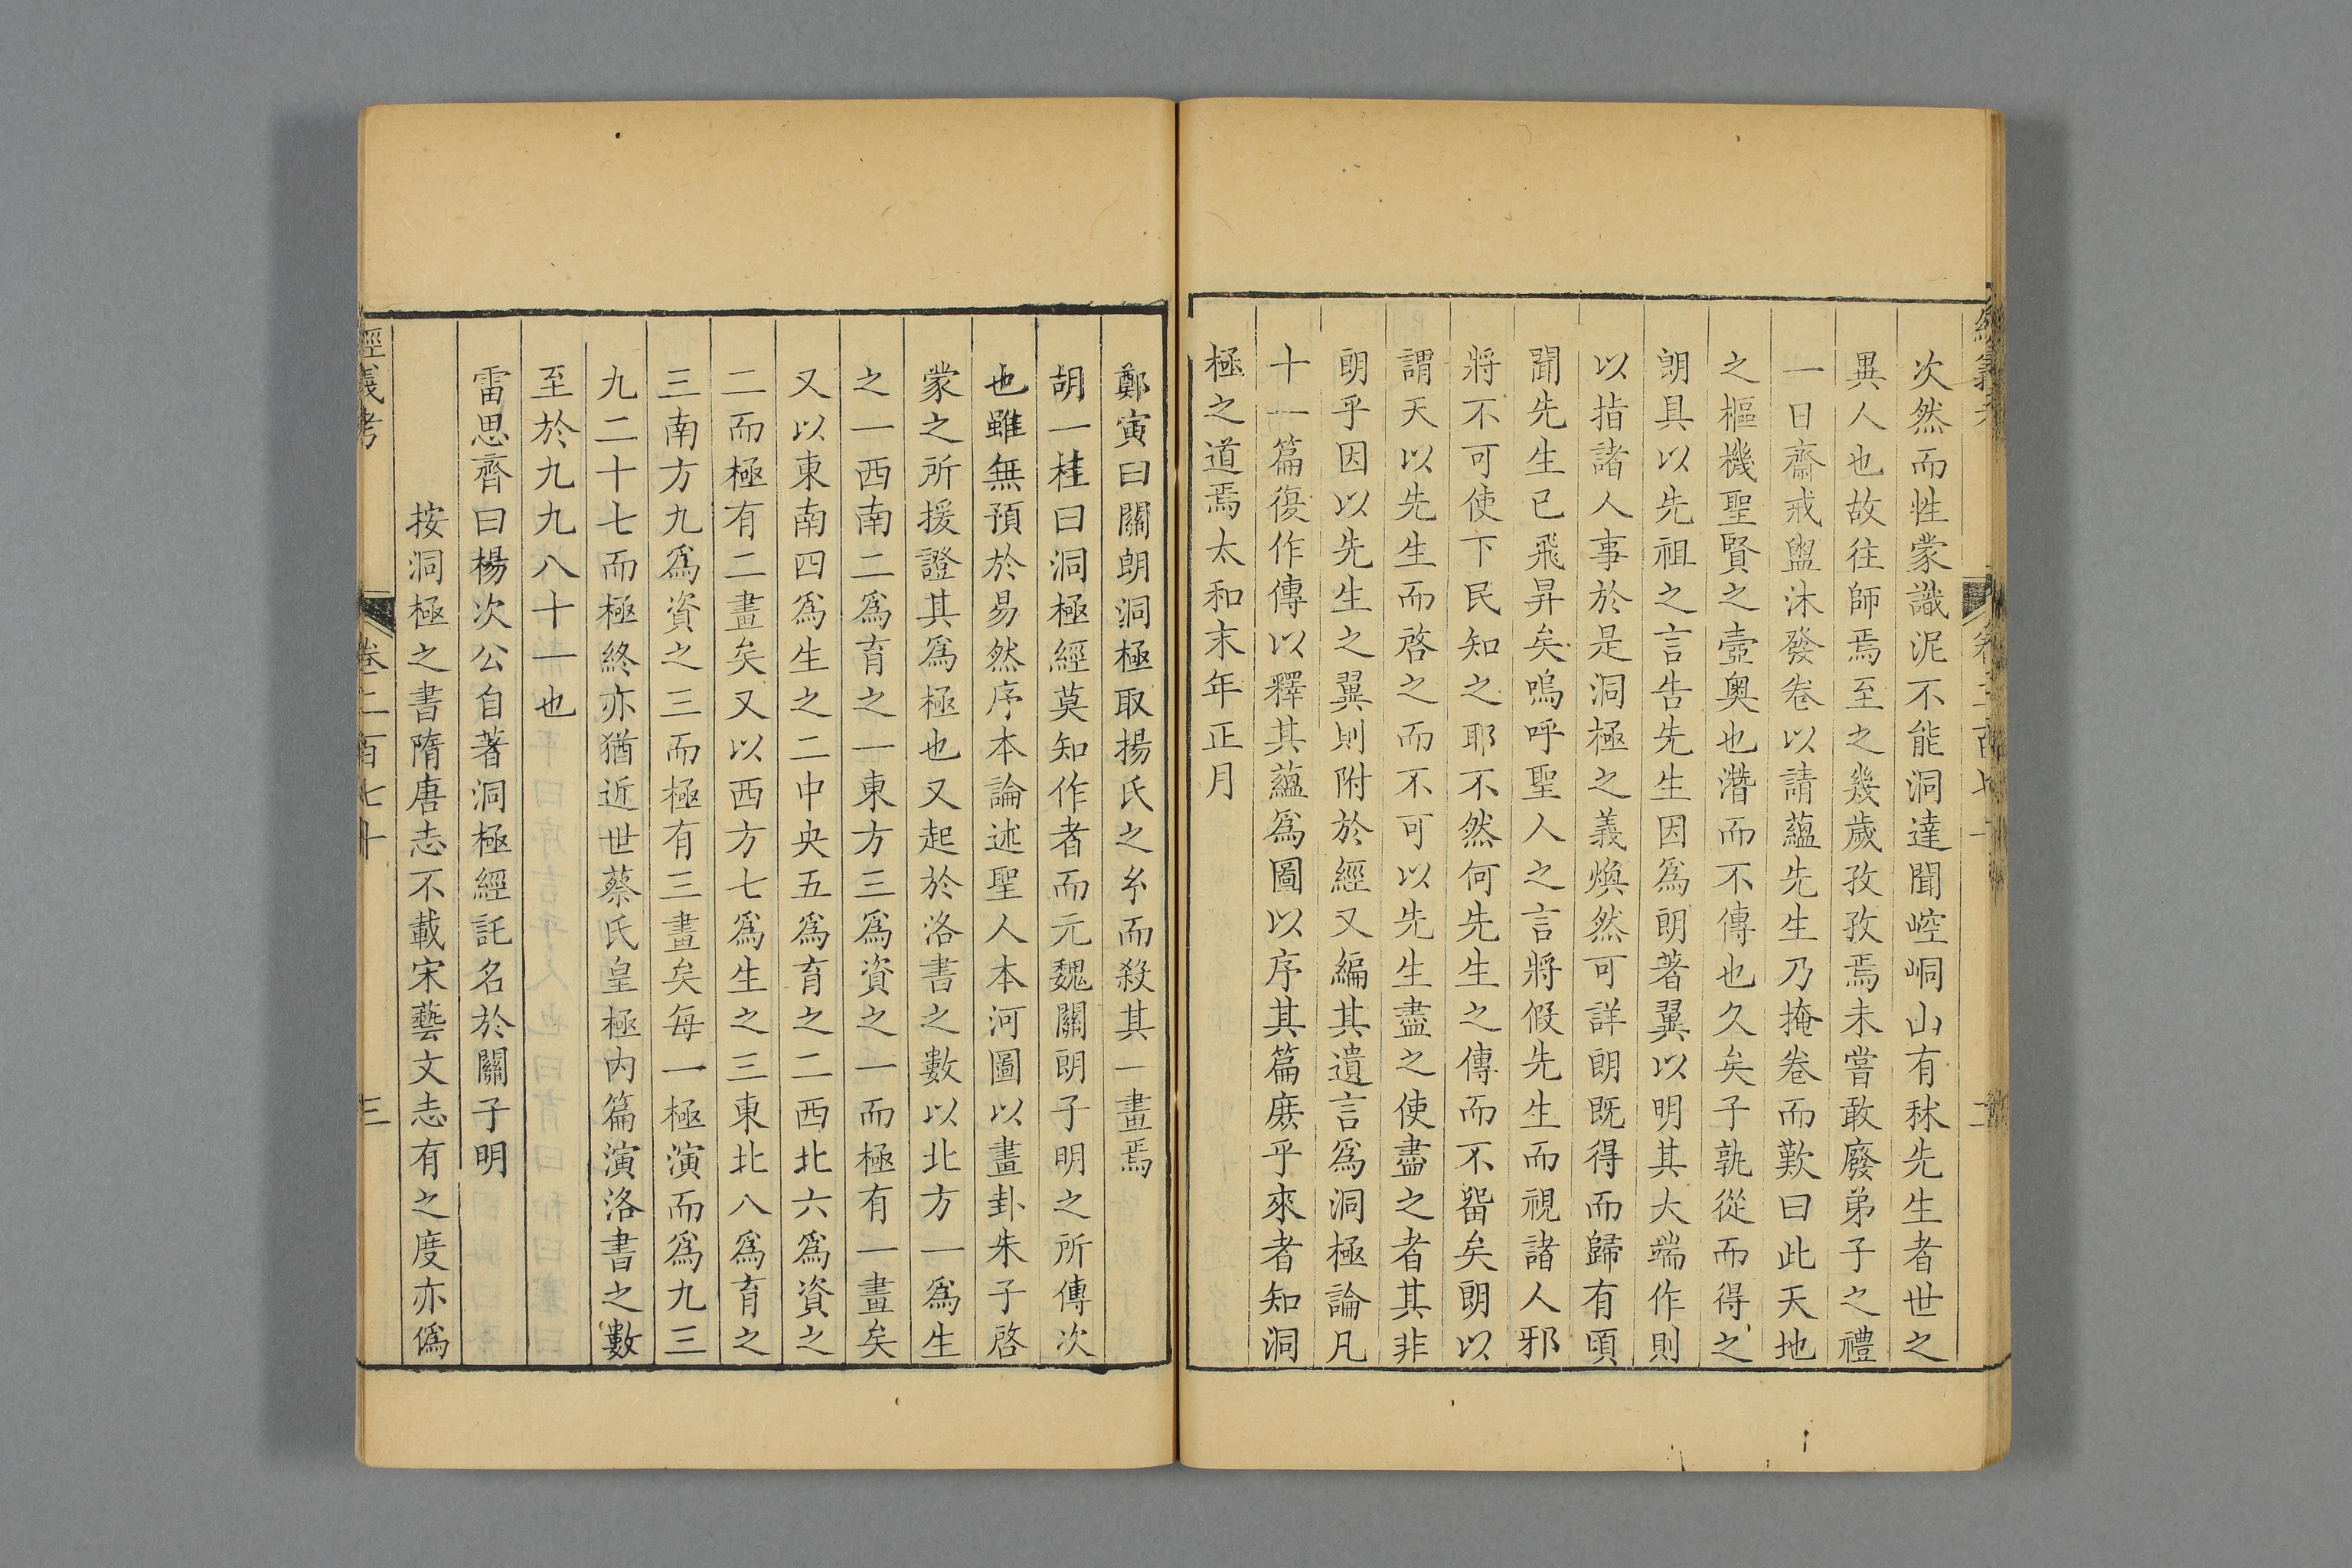 次然而性蒙識泥不能洞達聞崆峒山有秫先生者世之
異人也故往師焉至之幾歲孜孜焉未嘗敢廢弟子之禮
一日齋戒盥沐發卷以請蘊先生乃掩卷而歎曰此天地
之樞機聖賢之壼奧也潛而不傳也久矣子孰從而得之
朗具以先祖之言告先生因爲朗著翼以明其大端作則
以指諸人事於是洞極之義煥然可詳朗既得而歸有頃
聞先生已飛昇矣嗚呼聖人之言將假先生而視諸人邪
將不可使下民知之耶不然何先生之傳而不畱矣朗以
謂天以先生而啓之而不可以先生盡之使盡之者其非
朗乎因以先生之翼則附於經又編其遺言爲洞極論凡
十一篇復作傳以釋其蘊爲圖以序其篇庶乎來者知洞
極之道焉太和末年正月
鄭寅曰關朗洞極取揚氏之糸而殺其一畫焉
胡一桂曰洞極經莫知作者而元魏關朗子明之所傳次
也雖無預於易然序本論述聖人本河圖以畫卦朱子啓
蒙之所援證其爲極也又起於洛書之數以北方一爲生
之一西南二爲育之一東方三爲資之一而極有一畫矣
又以東南四爲生之二中央五爲育之二西北六爲資之
二而極有二畫矣又以西方七爲生之三東北八爲育之
三南方九爲資之三而極有三畫矣每一極演而爲九三
九二十七而極終亦猶近世蔡氏皇極內篇演洛書之數
至於九九八十一也
雷思齊曰楊次公自著洞極經託名於關子明
按洞極之書隋唐志不載宋藝文志有之度亦僞
經義考
卷二百七十
三